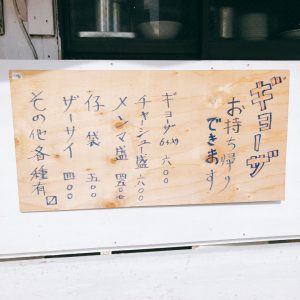 ギョーザ
お持ち帰り
できます
ギョーザ 6ヶ入り 六〇〇
チャーシュー盛 六〇〇
メンマ盛 四五〇
仔袋 五〇〇
ザーサイ 四〇〇
その他各種有〼